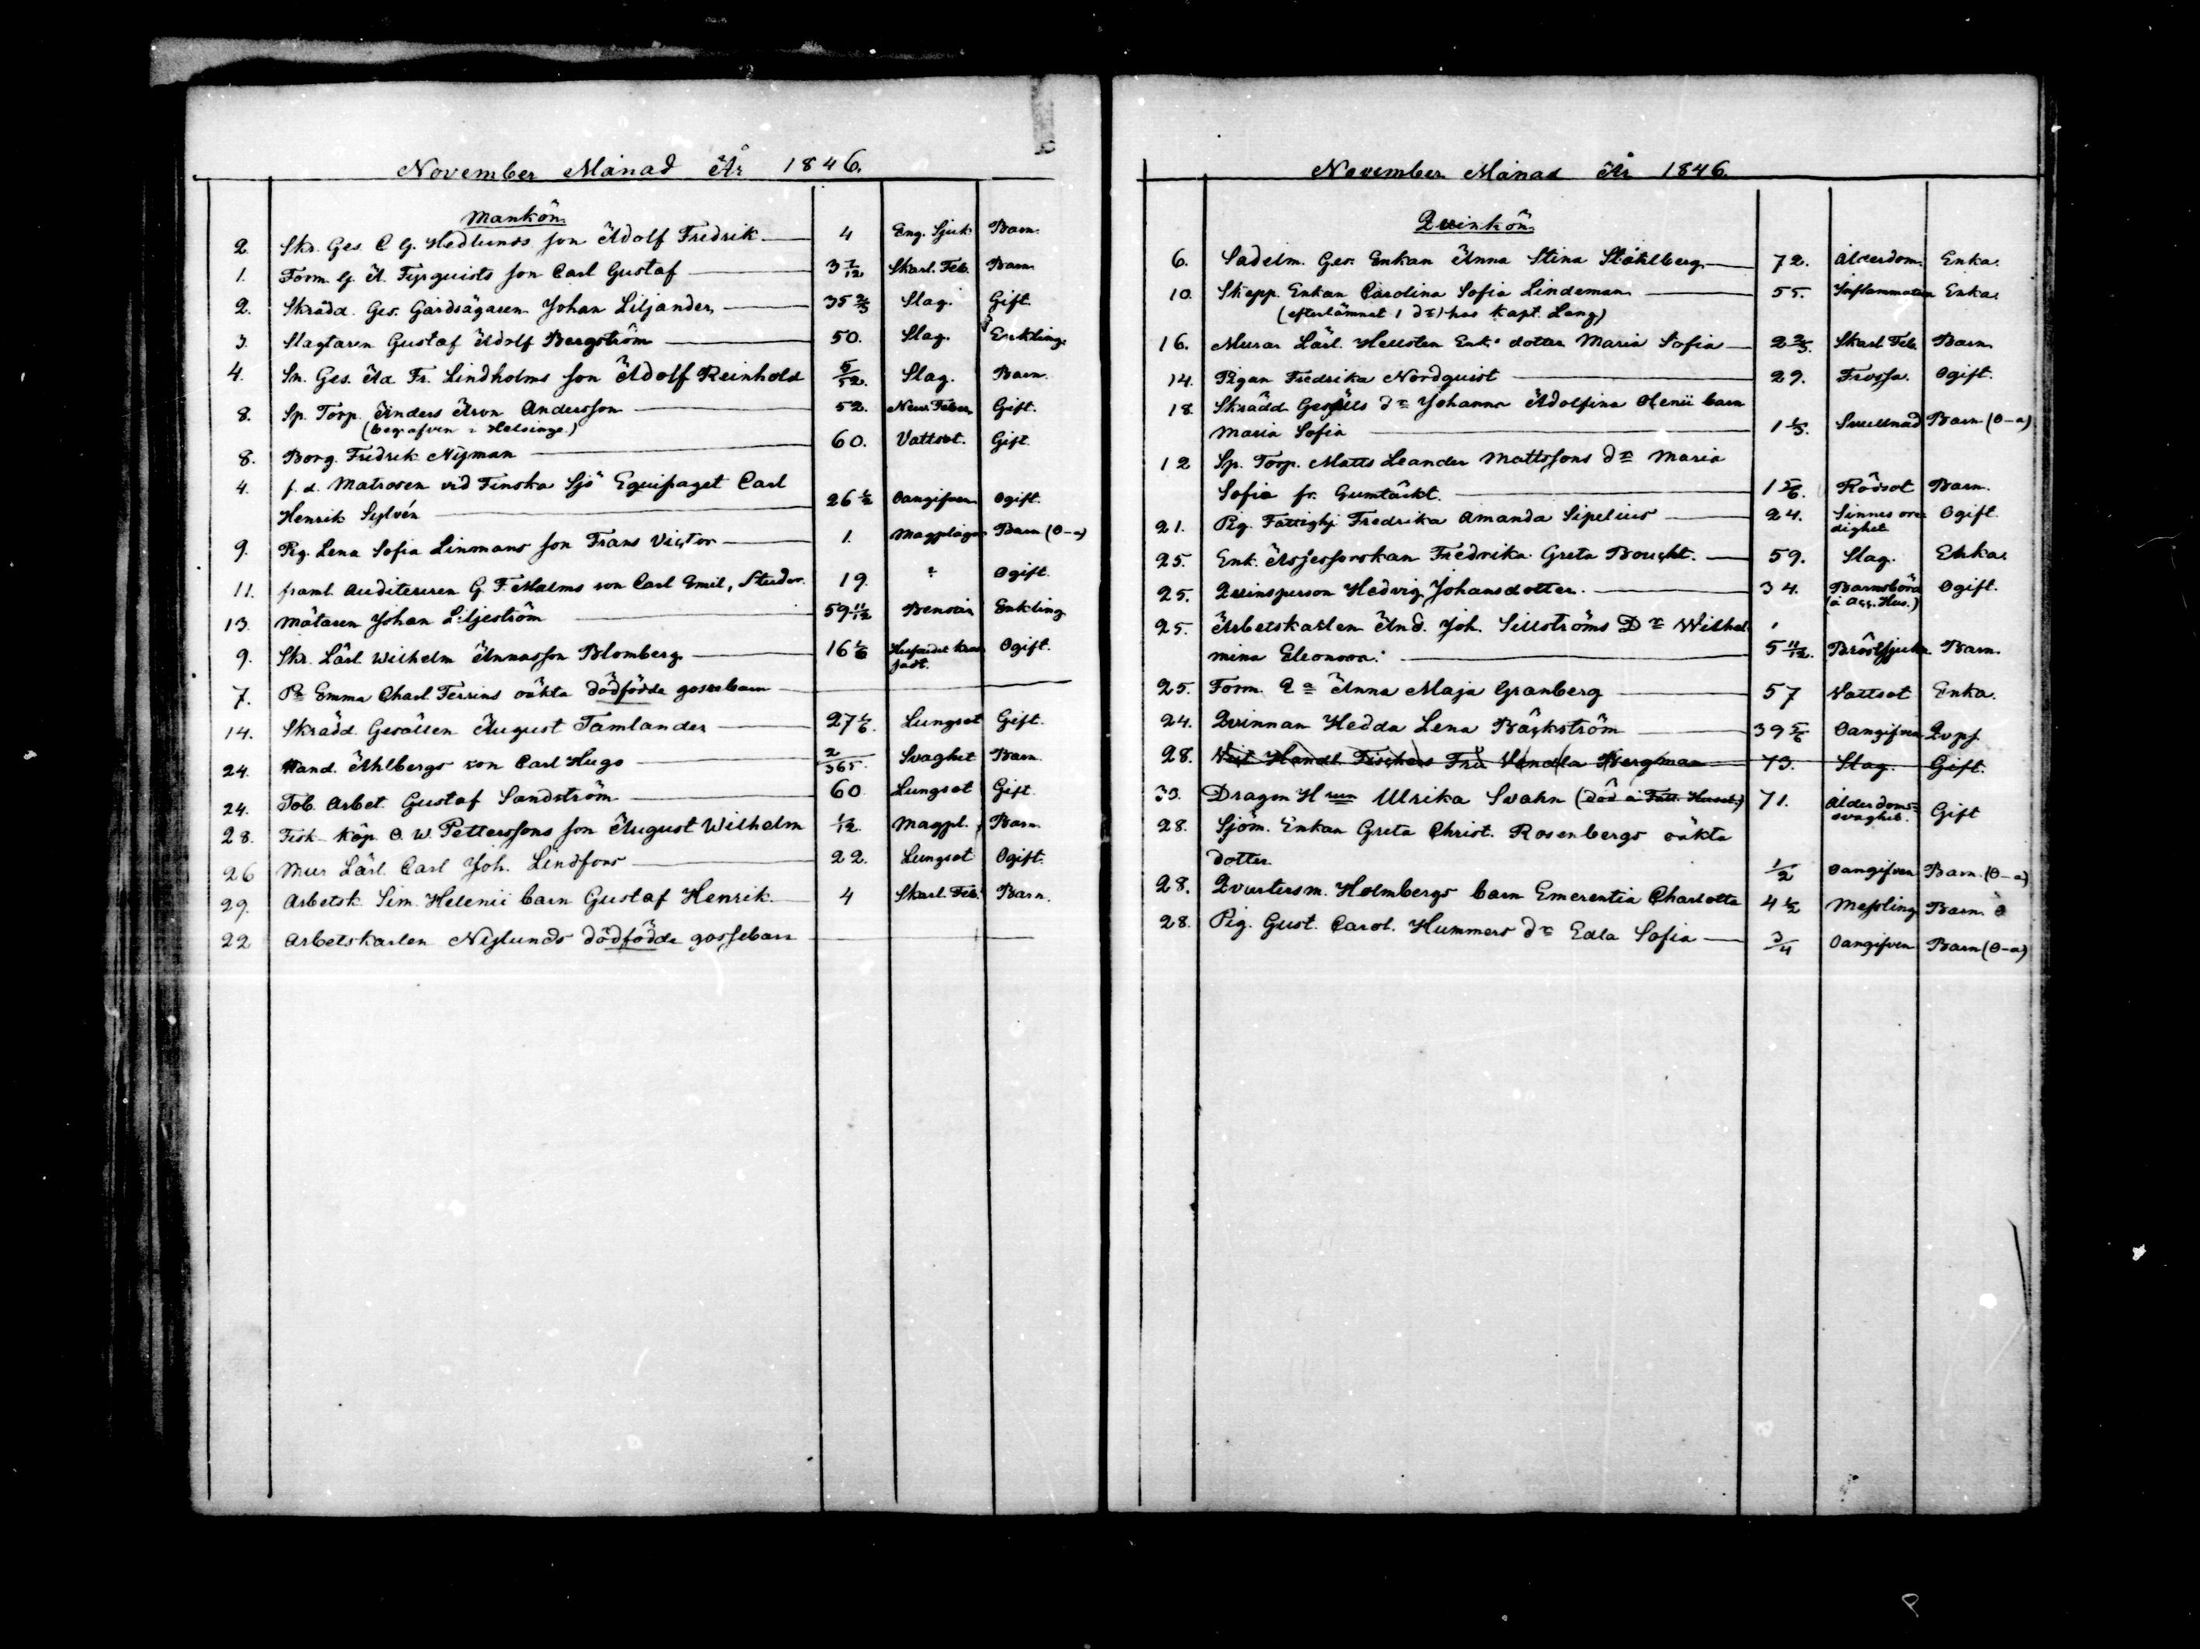 November Månad År 1846.
Mankön.
2. Skr. Ges. C G. Hedlunds son Adolf Fredrik 4 Eng. Sjuk Barn.
1. Form. G. A. Fyrquists son Carl Gustaf 3 7/12 Skarl. Feb. Barn.
2. Skrädd. Ges. Gårdsägaren Johan Liljander 35 2/3 Slag. Gift.
3. Slagtaren Gustaf Adolf Bergström 50. Slag. Enkling.
4. Sn. Ges. Ad. Fr. Lindholms son Adolf Reinhold 5/52. Slag. Barn.
8. Sp. Torp. Anders Aron Andersson 52. Nerv. Feber Gift.
(begrafven i Helsinge.)
8. Borg. Fredrik Nyman 60. Vattsot. Gift.
4. f. d. Matrosen vid Finska Sjö Equipaget Carl
Henrik Sylvén 26 1/2 Oangifven Ogift.
9. Pig. Lena Sofia Linmans son Frans Victor 1. Magplågor Barn (O-a)
11. framl. Auditeuren G. F. Malms son Carl Emil, Studer. 19. " Ogift.
13. Mätaren Johan Liljeström 59 11/12 Bensår Enkling
9. Skr. Lärl. Wilhelm Annasson Blomberg 16 1/6 Ogift.
7. Pn Emma Charl. Terrins oäkta dödfödda gossebarn
14. Skrädd. Gesällen August Tamlander 27 1/6. Lungsot Gift.
24. Hand. Ahlbergs son Carl Hugo 2/365. Svaghet Barn.
24. Tob. Arbet. Gustaf Sandström 60 Lungsot Gift.
28. Fisk. Köp. O. W. Petterssons son August Wilhelm 1/12. Magpl. Barn.
26 Mur Lärl. Carl Joh. Lindfors 22. Lungsot Ogift.
29. Arbetsk. Sim. Helenii barn Gustaf Henrik. 4 Skarl. Feb. Barn.
22 Arbetskarlen Nylunds dödfödda gossebarn
November Månad År 1846.
Qvinkön.
6. Sadelm. Ges. Enkan Anna Stina Ståhlberg 72. Ålderdom. Enka.
10. Skepp. Enkan Carolina Sofia Lindeman 55. Inflammation Enka.
(efterlämnat 1 dr) hos Kapt. Lang)
16. Murar Lärl. Hellsten Enk. dotter Maria Sofia 2 2/3. Skarl Feb. Barn.
14. Pigan Fredrika Nordquist 29. Frossa. Ogift.
18. Skrädd. Gesälls dr Johanna Adolfina Olenii barn
Maria Sofia 1 1/3. Svullnad Barn (O-a)
12 Sp. Torp. Matts Leander Mattssons dr Maria
Sofia fr. Gumtäckt. 1 5/6. Rödsot Barn.
21. Pig. Fattighj Fredrika Amanda Sipelius 24. Sinnes ore- Ogift.
dighet
25. Enk. Assessorskan Fredrika Greta Boucht. 59. Slag. Enka.
25. Qvinsperson Hedvig Johansdotter. 34. Barnsbörd Ogift.
(å Acc. Hus.)
25. Arbetskarlen And. Joh. Sillströms Dr Wilhel-
mina Eleonora. 5 11/12. Bröstsjuka Barn.
25. Form. Ea Anna Maja Granberg 57 Vattsot Enka.
24. Qvinnan Hedda Lena Bäckström 39 5/6 Oangifven Qvpf
28. Handl. Fischers Fru Vendla Bergman 73. Slag. Gift.
30. Dragon Hrun Ulrika Svahn (död å Fatt. Huset) 71. Ålderdoms- Gift
svaghet.
28. Sjöm. Enkan Greta Christ. Rosenbergs oäkta
dotter. 1/2 Oangifven Barn. (O-a)
28. Qvartersm. Holmbergs barn Emerentia Charlotta 4 1/2 Messling Barn.
28. Pig. Gust. Carol. Hummers dr Edla Sofia 3/4 Oangifven Barn (O-a)